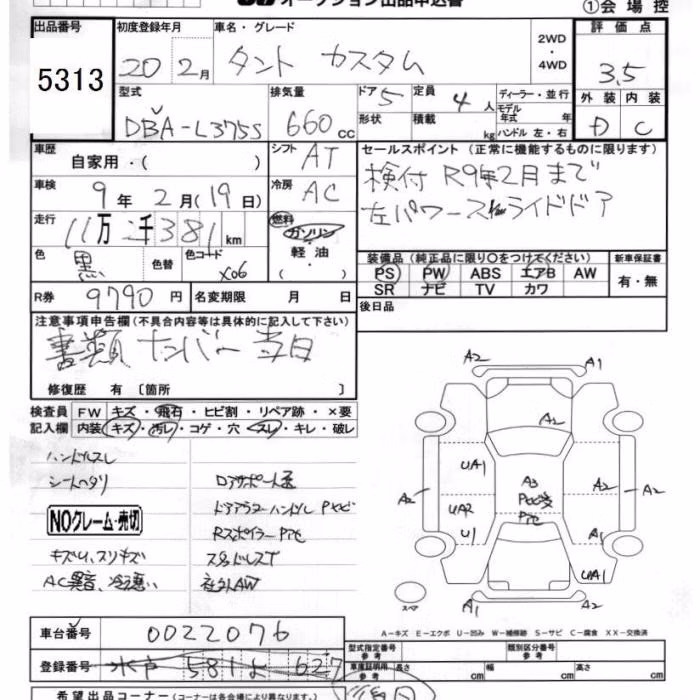 オークション出品申込書
①会場控
出品番号
5313
初度登録年月
20 2月
車名・グレード
タント カスタム
2WD
・
4WD
評価点
3.5
外装 内装
D C
型式
DBA-L375S
排気量
660 cc
ドア 5
形状
定員 4 人
積載 kg
ディーラー・並行
モデル年式 年
ハンドル 左・右
車歴
自家用・( )
シフト AT
車検
9年 2月(19日)
冷房 AC
走行
11万 2千381 km
燃料
ガソリン
・
軽油
( )
色
黒
色替
色コード
X06
R券 9790 円
名変期限 月 日
セールスポイント (正常に機能するものに限ります)
検付 R9年2月まで
左パワースライドドア
装備品 (純正品に限り○をつけてください)
PS PW ABS エアB AW
SR ナビ TV カワ
新車保証書
有・無
後日品
注意事項申告欄 (不具合内容等は具体的に記入して下さい)
書類 ナンバー 当日
修復歴 有 〔箇所 〕
検査員 FW キズ・飛石・ヒビ割・リペア跡・×要
記入欄 内装 キズ・汚レ・コゲ・穴・スレ・キレ・破レ
ハンドルスレ
シートヘタリ
NOクレーム・売切
キズU,スリキズ
AC異音、冷え悪い
ドアバイザー
Rスポイラー
スタッドレスT
社外AW
A2 A1
A2
UA1 A3 A2
A2 UA2 A2
U1 A1
UA1
A1 A2
スペア
A－キズ E－エクボ U－凹み W－補修跡 S－サビ C－腐食 XX－交換済
車台番号 0022076
登録番号 水戸 581 よ 627
型式指定番号 類別区分番号
車庫証明用参考 長さ cm 幅 cm 高さ cm
希望出品コーナー (コーナーは各会場により異なります。)